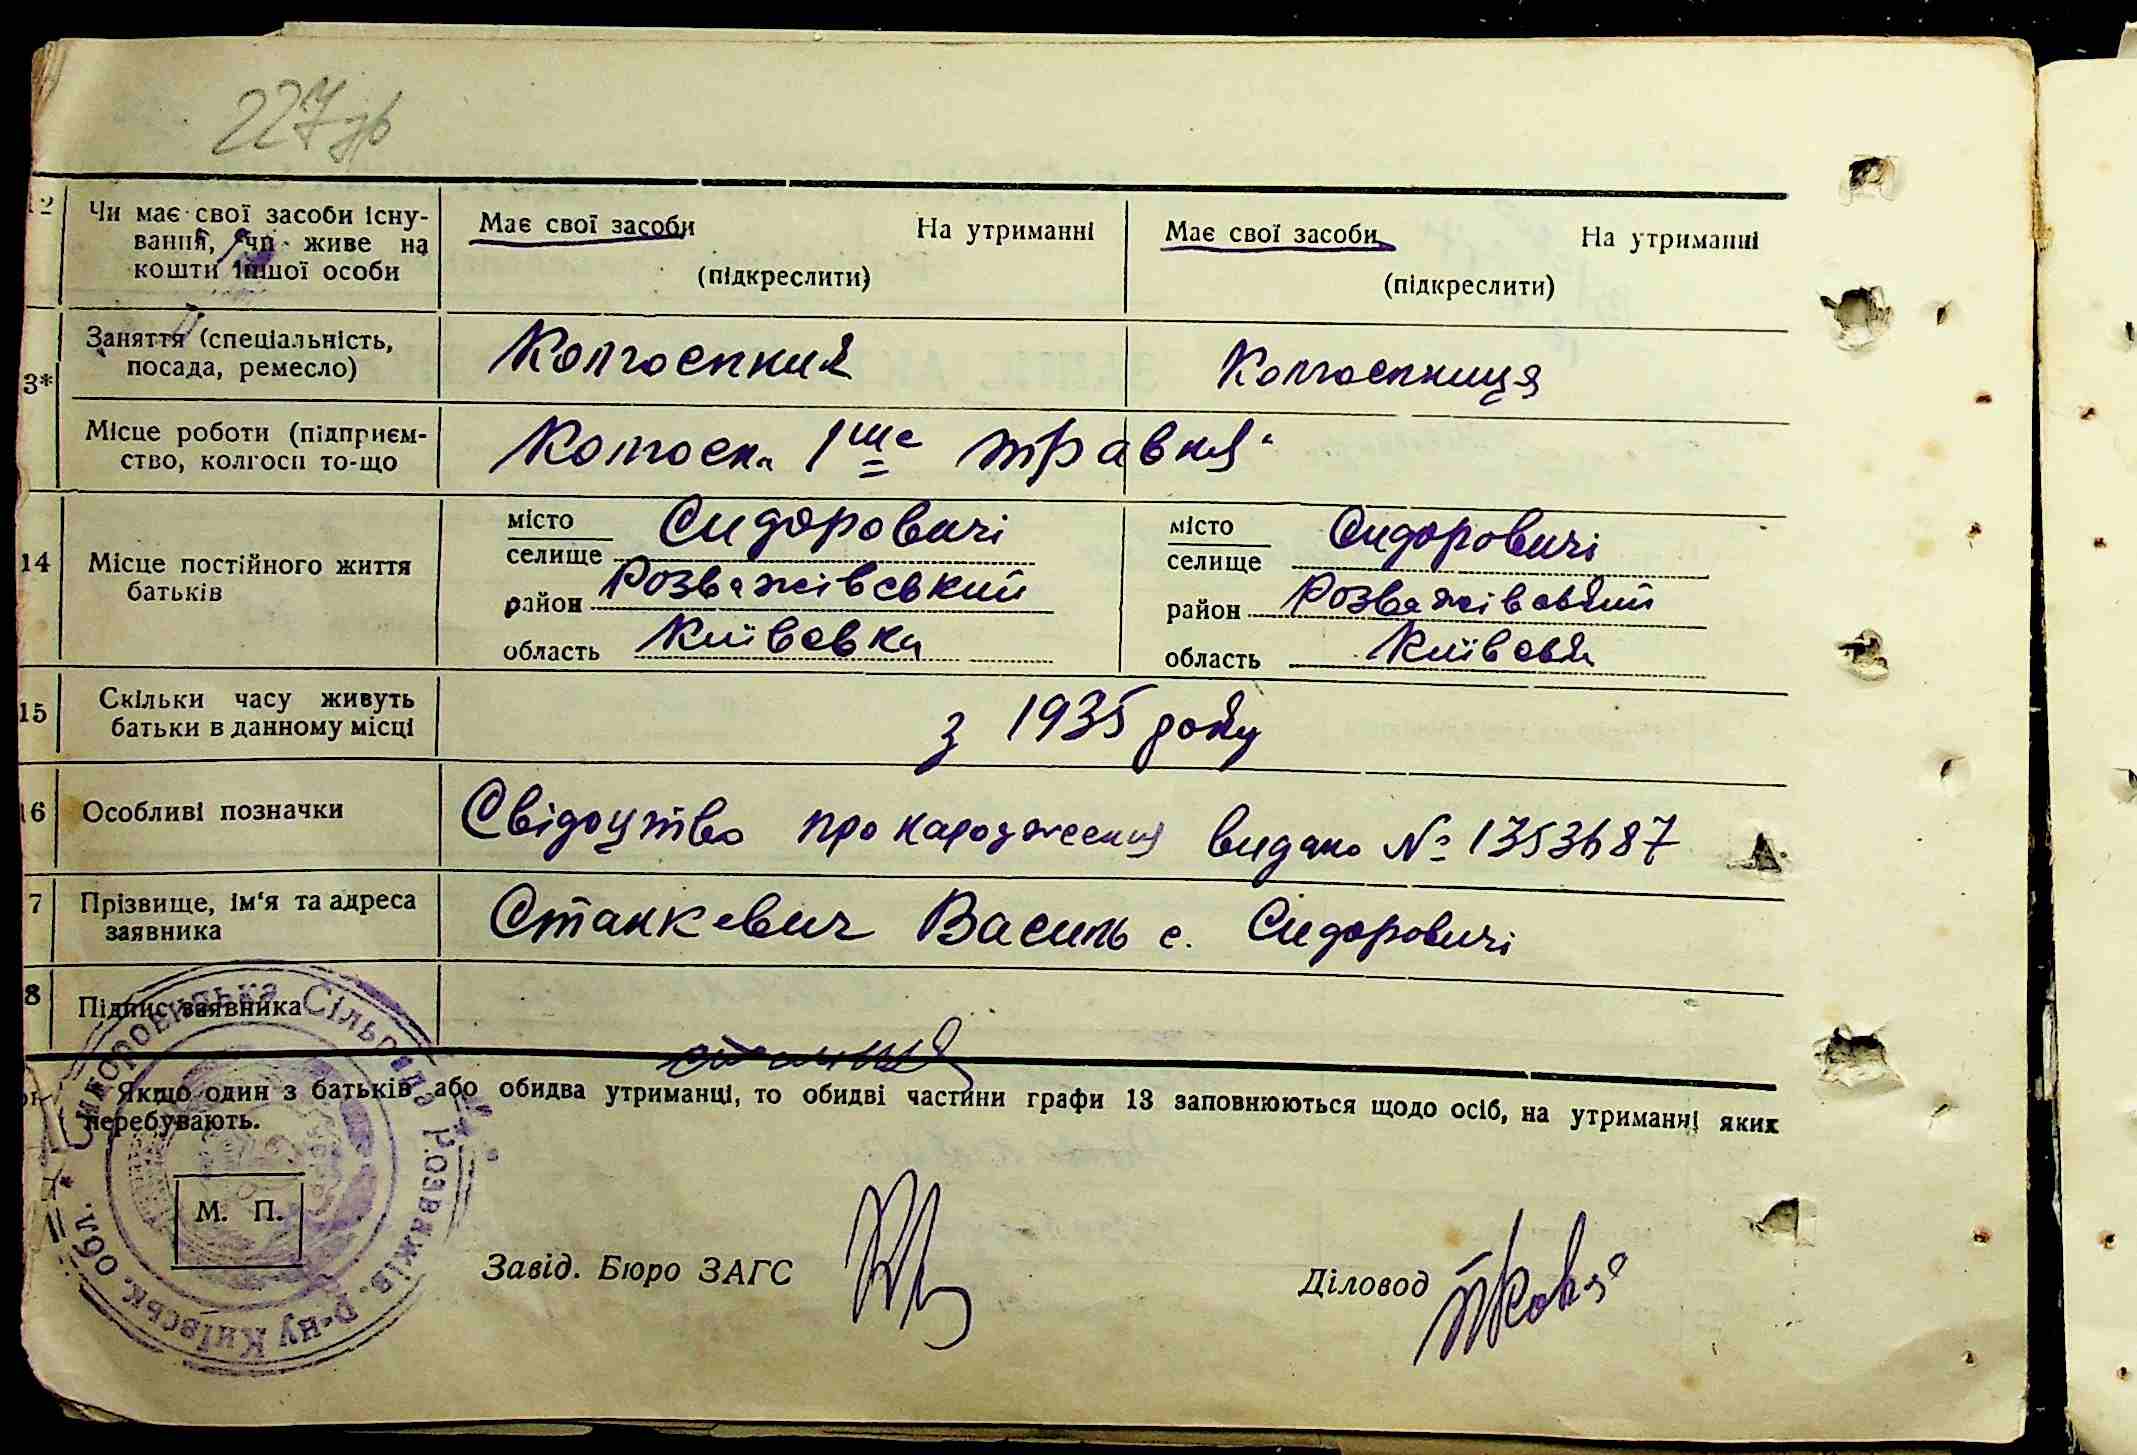 227зв
12 Чи має свої засоби існу-
вання, чи живе на
кошти іншої особи
Має свої засоби На утриманні
(підкреслити)
Має свої засоби На утриманні
(підкреслити)
3* Заняття (спеціальність,
посада, ремесло)
Колгоспник
Колгоспниця
Місце роботи (підприєм-
ство, колгосп то-що
Колгосп „1ше травня“
14 Місце постійного життя
батьків
місто
селище Сидоровичі
район Розважівський
область Київська
місто
селище Сидоровичі
район Розважівський
область Київськ
15 Скільки часу живуть
батьки в данному місці
з 1935 року
16 Особливі позначки
Свідоцтво про народження видано № 1353687
7 Прізвище, ім'я та адреса
заявника
Станкевич Василь с. Сидоровичі
8 Підпис заявника
Якщо один з батьків або обидва утриманці, то обидві частини графи 13 заповнюються щодо осіб, на утриманні яких
перебувають.
Сидоровицька Сільрада Розважів. р-ну Київськ. обл.
М. П.
Завід. Бюро ЗАГС
Діловод